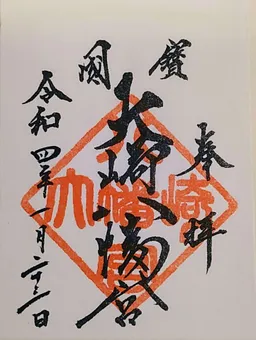 奉拝
國寳
大崎八幡宮
令和四年一月二十三日
大崎八幡宮